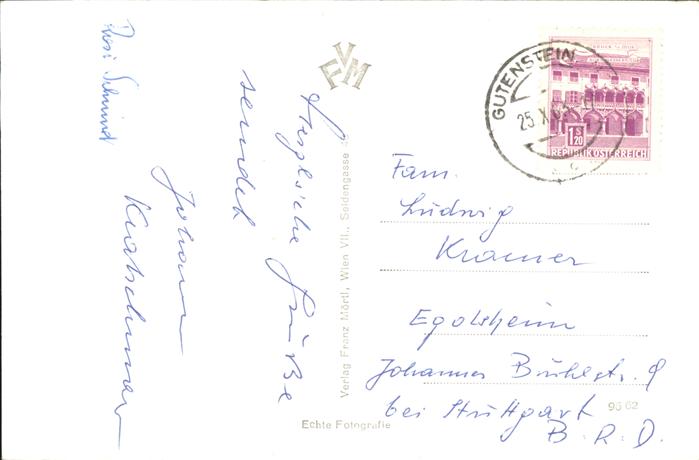 Herzliche Grüße
sendet
Johann
Rosi Schmid
V
F M
Verlag Franz Mörtl, Wien VII., Seidengasse
Echte Fotografie
GUTENSTEIN
25.X.63
1 S 20
REPUBLIK ÖSTERREICH
Fam.
Ludwig
Kramer
Egolsheim
Johannes Buhlstr. 9
bei Stuttgart
9662
B.R.D.